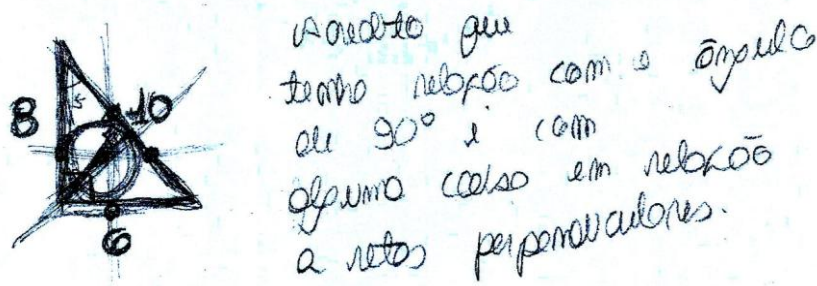 8
10
6
Acredito que
tenha relação com o ângulo
de 90° e com
alguma coisa em relação
a retas perpendiculares.